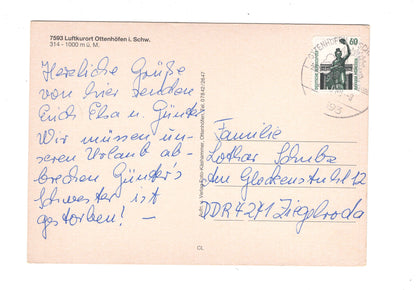 7593 Luftkurort Ottenhöfen i. Schw.
314 - 1000 m ü. M.
Herzliche Grüße
von hier senden
Euch Elsa u. Günter
Wir müssen un-
seren Urlaub ab-
brechen Günter's
Schwester ist
gestorben! –
Ottenhöfen, Tel. 07842/2647
60
Familie
Lothar Schulze
Am Glockenstuhl 12
DDR 4271 Ziegelroda
CL